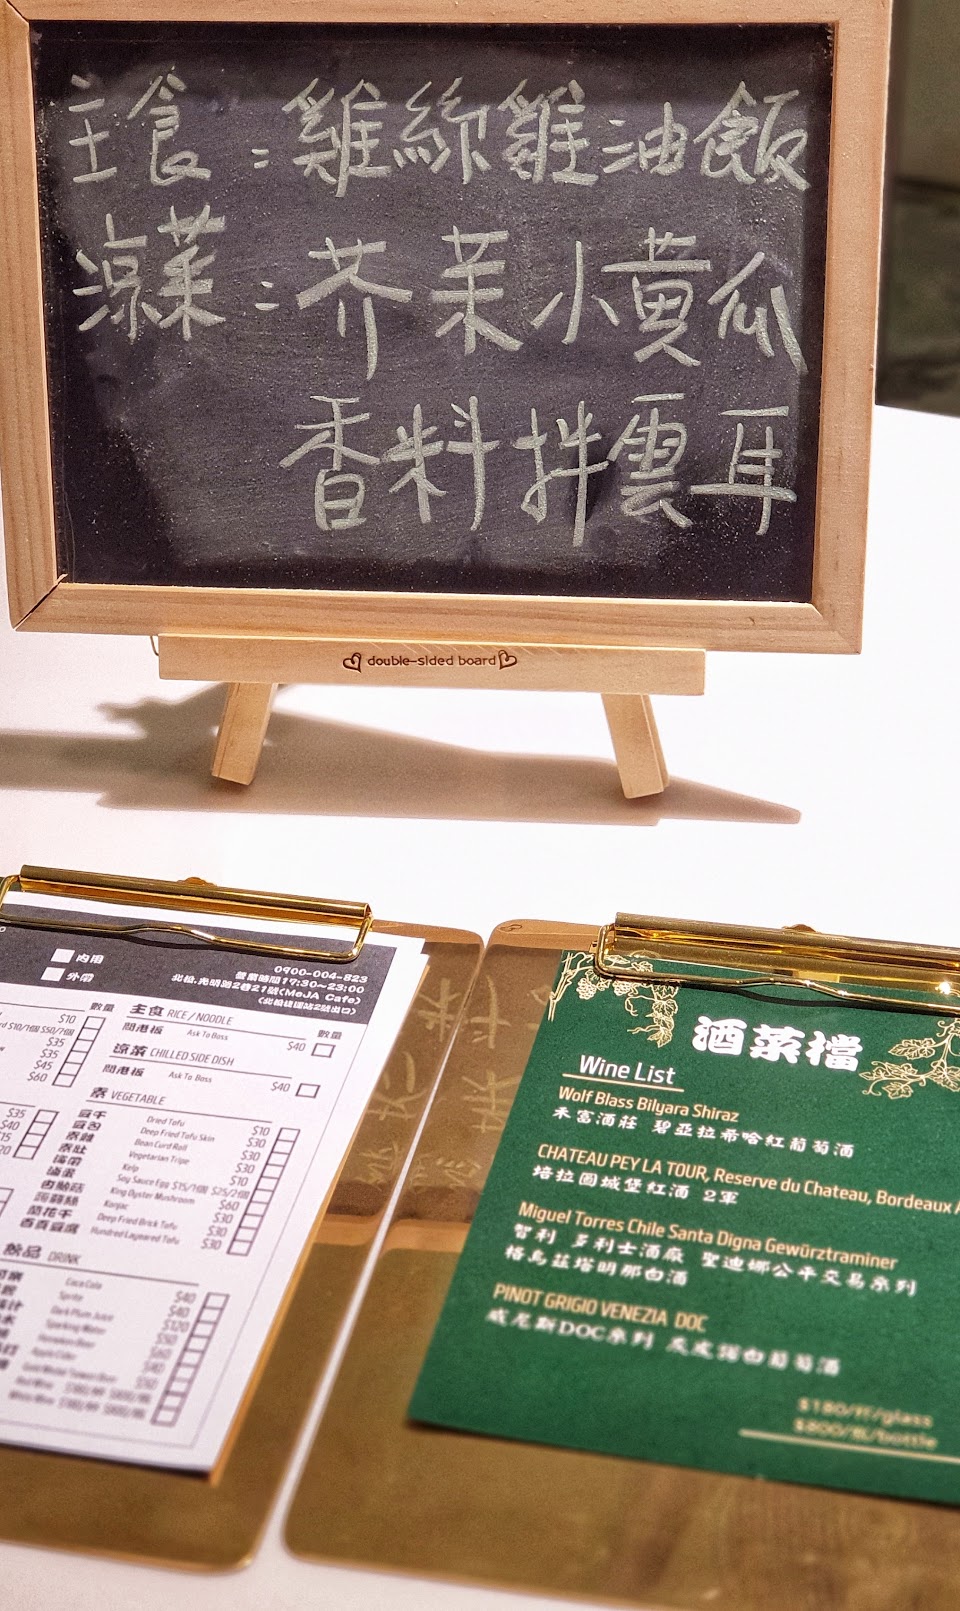 主食：雞絲雞油飯
涼菜：芥茉小黃瓜
香料拌雲耳
double-sided board
內用
外帶
0900-004-823
營業時間17:30~23:00
北投.光明路2巷21號(MeJA Cafe)
(北投捷運站2號出口)
數量
$10
$10/1個 $50/7個
$35
$35
$45
$60
$35
$40
主食 RICE / NOODLE 數量
問港板 Ask To Boss $40
涼菜 CHILLED SIDE DISH
問港板 Ask To Boss $40
素 VEGETABLE
豆干 Dried Tofu $10
豆包 Deep Fried Tofu Skin $30
素雞 Bean Curd Roll $30
素肚 Vegetarian Tripe $30
海帶 Kelp $10
滷蛋 Soy Sauce Egg $15/1個 $25/2個
杏鮑菇 King Oyster Mushroom $60
蒟蒻絲 Konjac $30
蘭花干 Deep Fried Brick Tofu $30
百頁豆腐 Hundred Layeared Tofu $30
飲品 DRINK
Coca Cola $40
Sprite $40
Dark Plum Juice
Sparking Water
Heineken Beer
Apple Cider
Gold Medal Taiwan Beer
Red Wine
White Wine
酒菜檔
Wine List
Wolf Blass Bilyara Shiraz
禾富酒莊 碧亞拉希哈紅葡萄酒
CHATEAU PEY LA TOUR, Reserve du Chateau, Bordeaux
培拉圖城堡紅酒 2軍
Miguel Torres Chile Santa Digna Gewürztraminer
智利 多利士酒廠 聖迪娜公平交易系列
格烏茲塔明那白酒
PINOT GRIGIO VENEZIA DOC
威尼斯DOC系列 灰皮諾白葡萄酒
$180/杯/glass
$800/瓶/bottle